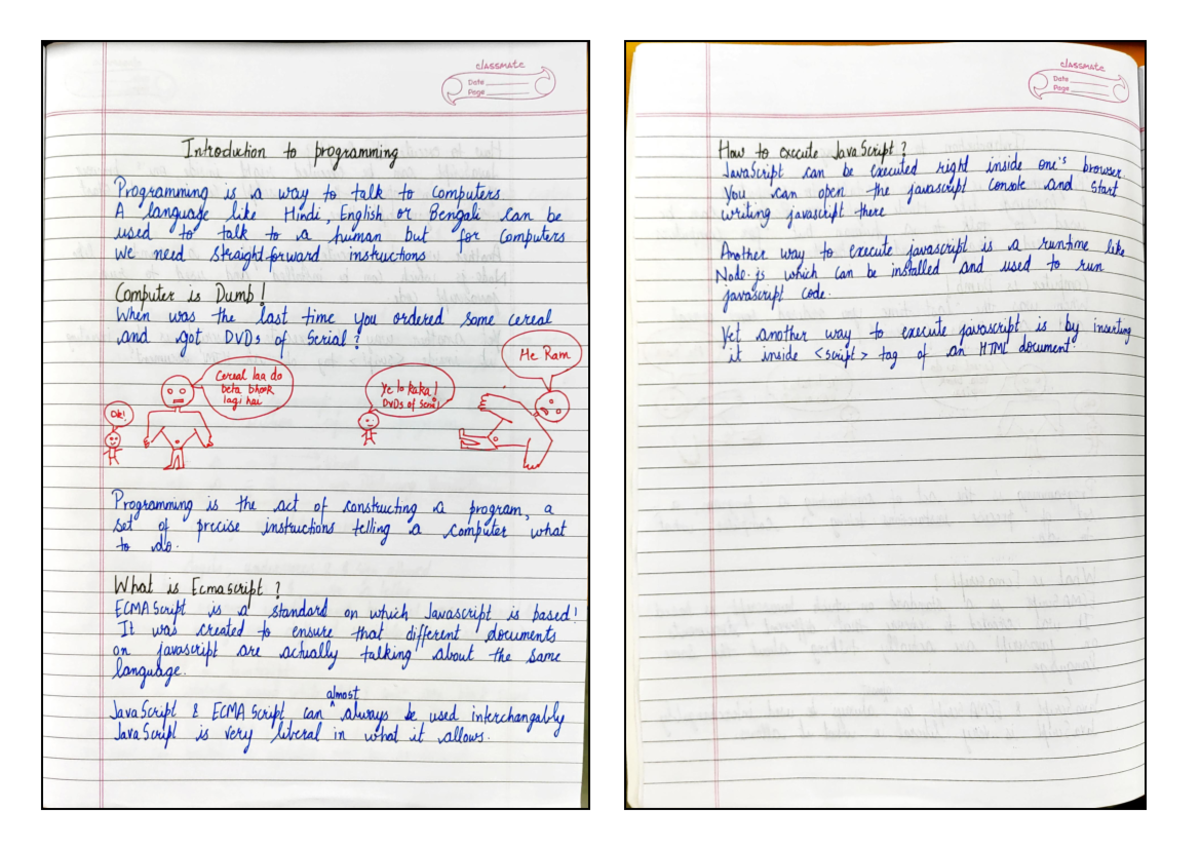 classmate
Date
Page
Introduction to programming
Programming is a way to talk to computers
A language like Hindi, English or Bengali can be
used to talk to a human but for computers
we need straightforward instructions
Computer is Dumb!
When was the last time you ordered some cereal
and got DVDs of Serial?
Ok!
Cereal laa do
beta bhook
lagi hai
Ye lo kaka!
DVDs of Serial
He Ram
Programming is the act of constructing a program, a
set of precise instructions telling a computer what
to do.
What is Ecmascript?
ECMAScript is a standard on which Javascript is based!
It was created to ensure that different documents
on javascript are actually talking about the same
language.
almost
JavaScript & ECMA Script can ^ always be used interchangably
JavaScript is very liberal in what it allows.
classmate
Date
Page
How to execute JavaScript?
JavaScript can be executed right inside one's browser.
You can open the javascript console and start
writing javascript there
Another way to execute javascript is a runtime like
Node.js which can be installed and used to run
javascript code.
Yet another way to execute javascript is by inserting
it inside <script> tag of an HTML document.